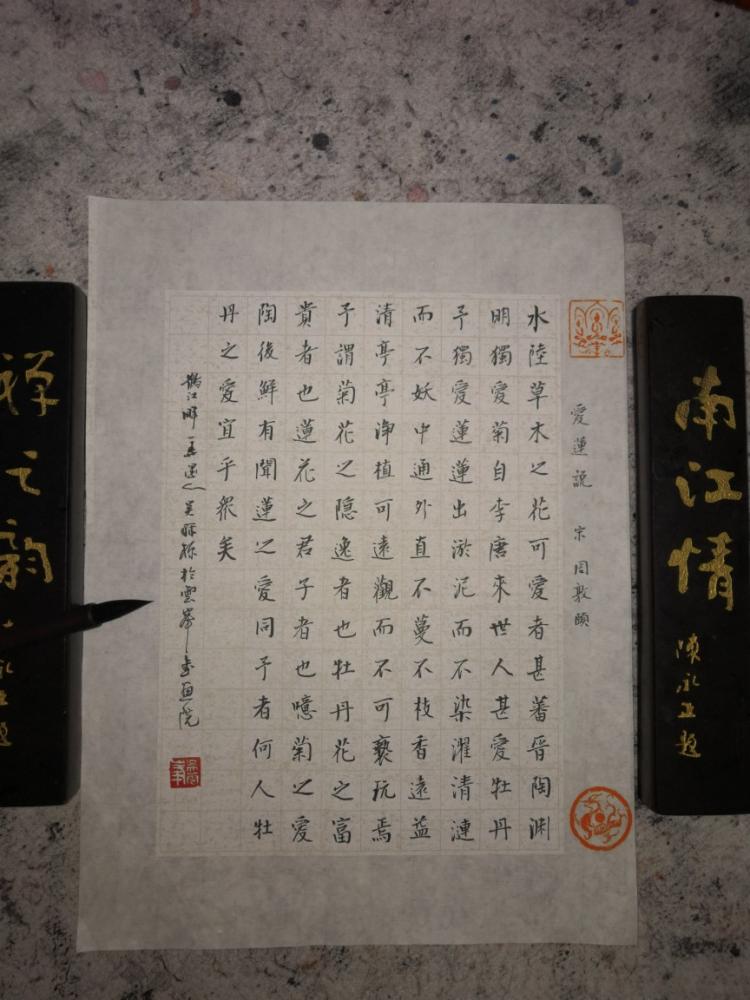 南江情
陳永正題
愛蓮說 宋 周敦頤
水陸草木之花可愛者甚蕃晉陶渊
明獨愛菊自李唐來世人甚愛牡丹
予獨愛蓮蓮出淤泥而不染濯清漣
而不妖中通外直不蔓不枝香遠益
清亭亭净植可遠觀而不可褻玩焉
予謂菊花之隐逸者也牡丹花之富
貴者也蓮花之君子者也噫菊之愛
陶後鮮有聞蓮之愛同予者何人牡
丹之愛宜乎衆矣
江畔 吴 於雲峯書画院
禅之韵
永正題